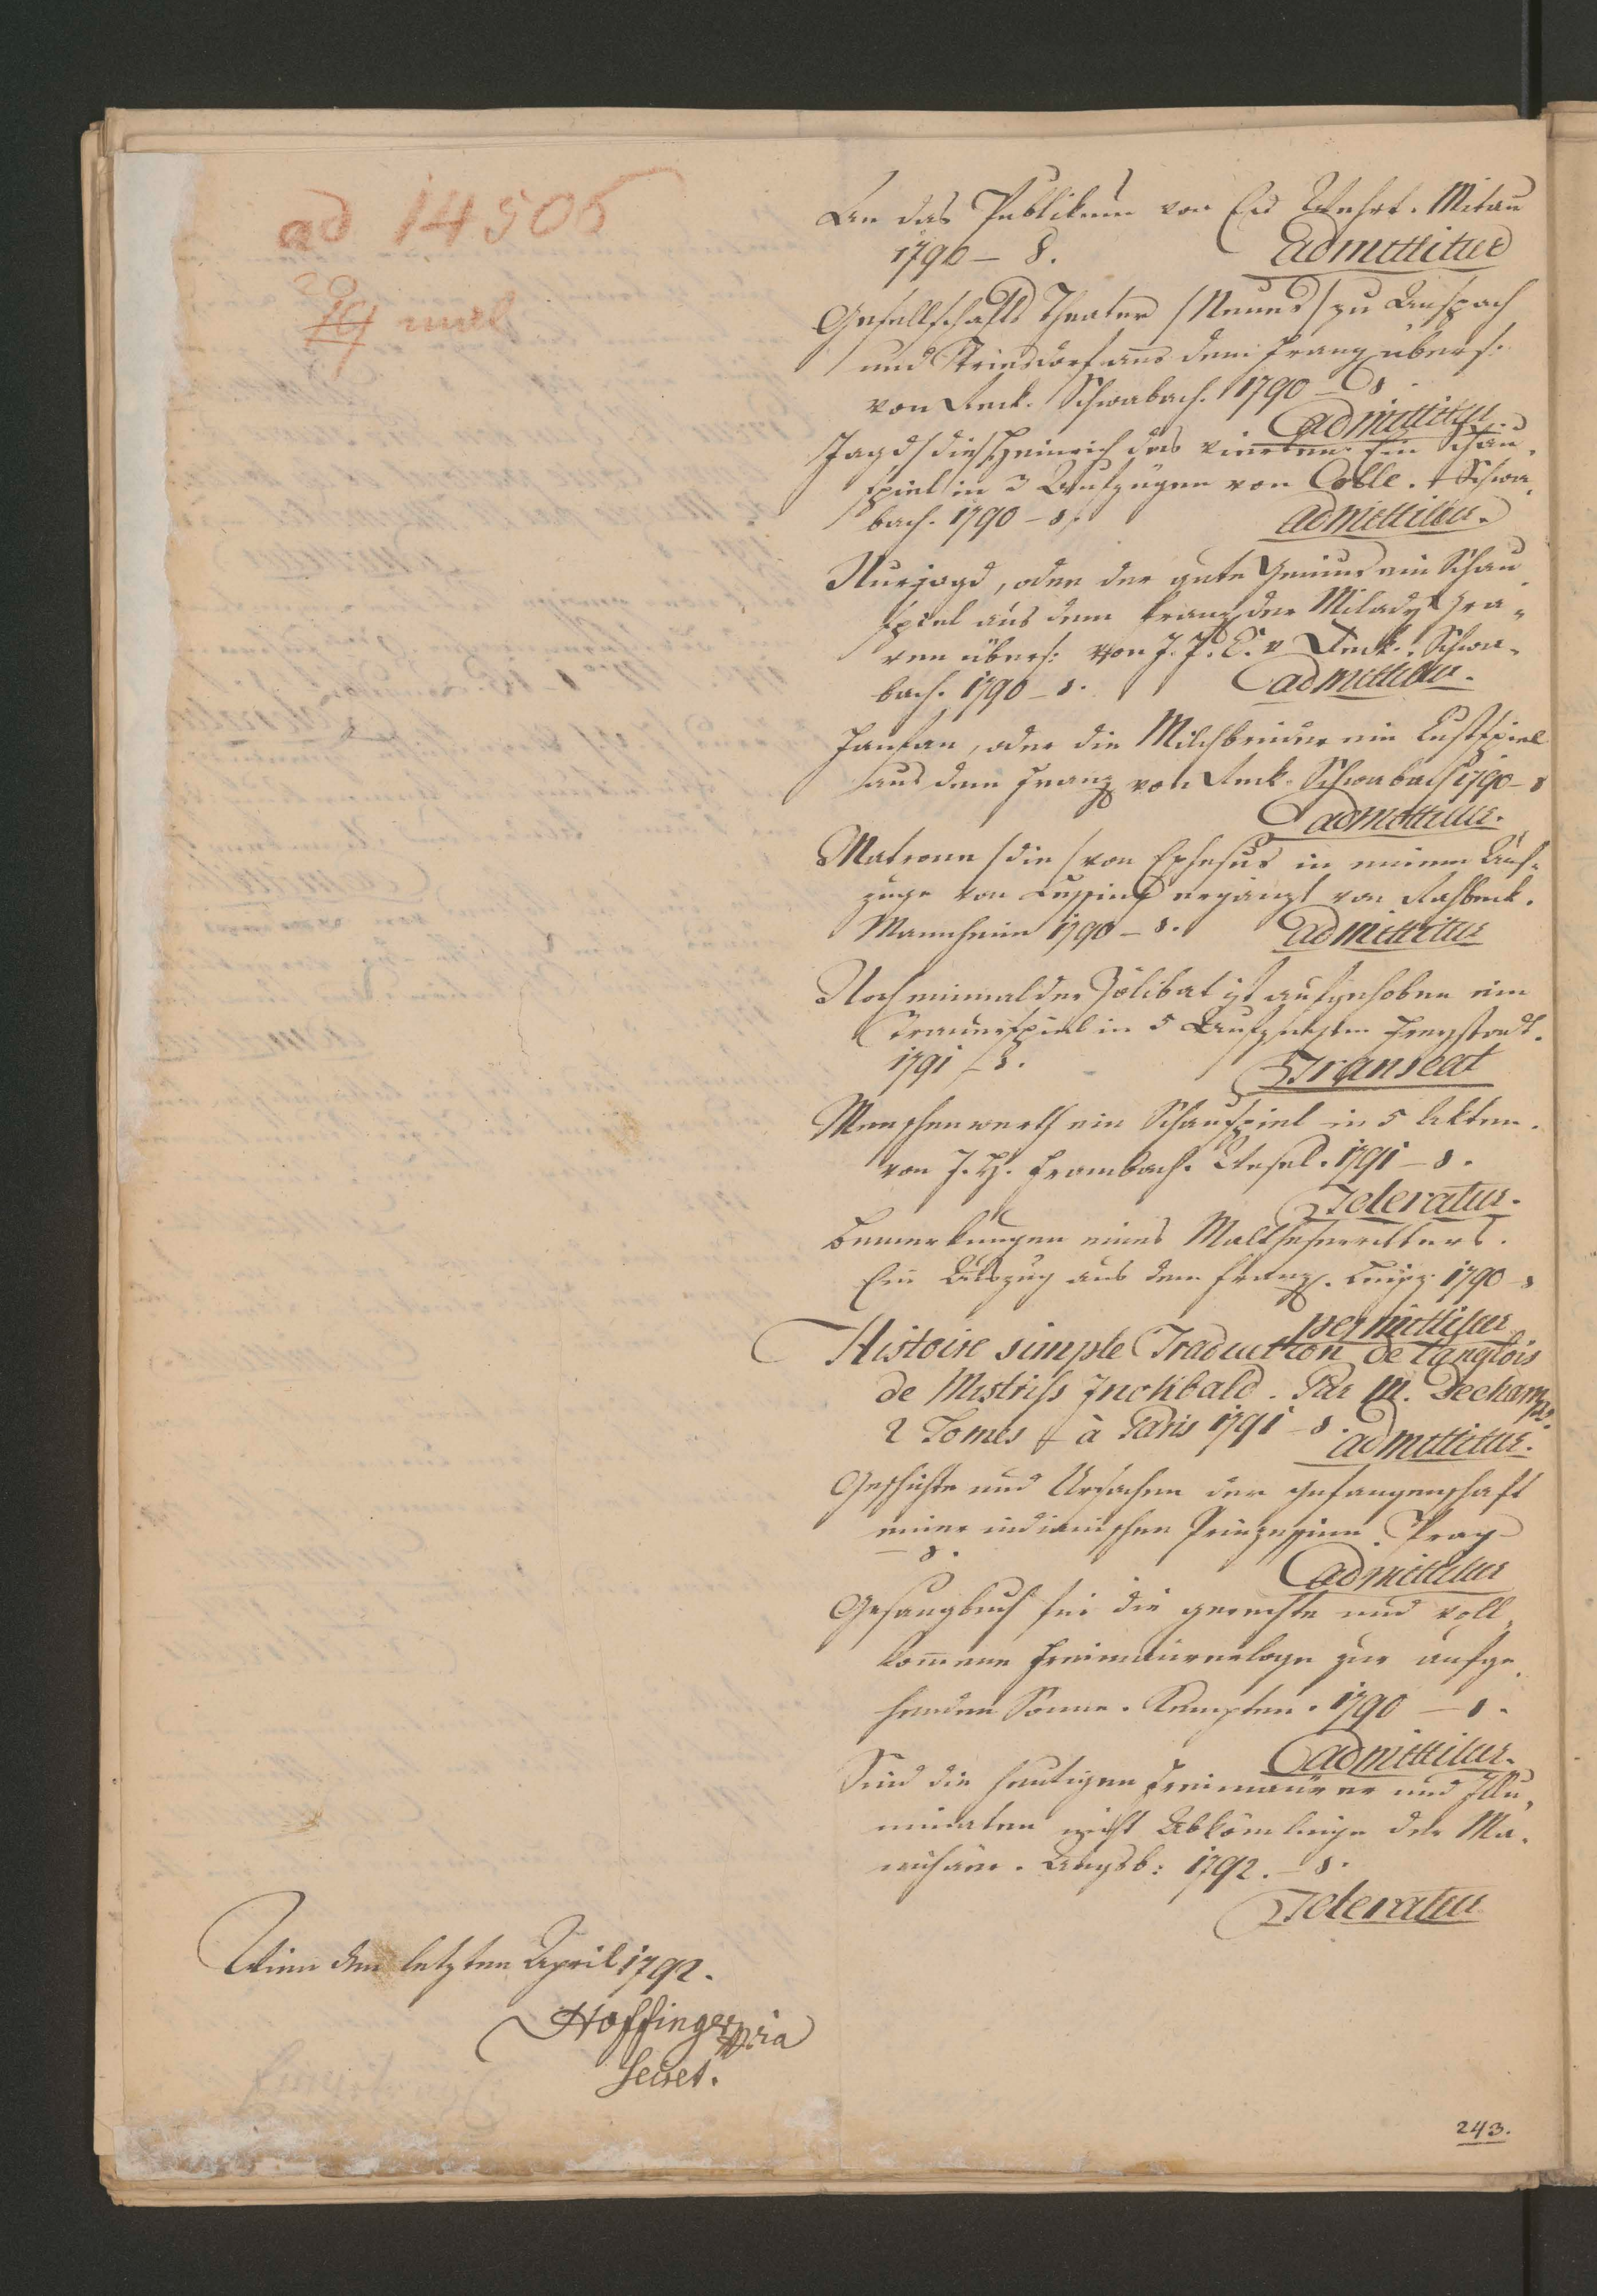 ad 14506
20
19 mal
An das Publikum von Ed Wehrt. Mitau
1790 – 8. admittitur
Gesellschafts Theater /Neues/ zu Anspach
und Triesdorf aus dem Franz. übers:
von Reck. Schwabach. 1790 – 8
admittitur
Jagd /die/ Heinrich des vierten. Ein Schau-
spiel in 3 Aufzügen von Colle. Schwa-
bach. 1790 – 8. admittitur.
Nurjagd, oder der gute Genius ein Schau
spiel aus dem Franz der Milady Cra-
ven übers: von J. J. C. v Reck. Schwa-
bach. 1790 – 8. admittitur.
Janfan, oder die Milchbrüder ein Lustspiel
aus dem Franz von Reck. Schwabach 1790 – 8
admittitur.
Matrone /die/ von Ephesus in einem Auf-
zuge von Lessing ergänzt von Rahbeck.
Mannheim 1790 – 8. admittitur
Noch einmal der Zölibat ist aufgehoben ein
Trauerspiel in 5 Aufzügen Freystadt.
1791 – 8. Transeat
Menschenwerth ein Schauspiel in 5 Akten.
von J. H. Frambach. Wesel. 1791 – 8.
Toleratur.
Bemerkungen eines Malthesерritters.
Ein Auszug aus dem Franz. Leipz. 1790 – 8
permittitur
Histoire simple Traduction de l'anglois
de Mistriss Inchbald. Par M. Dechamps.
2 Tomes à Paris 1791 – 8. admittitur.
Geschichte und Ursachen der Gefangenschaft
einer indianischen Prinzessinn. Prag
– 8. admittitur
Gesangbuch für die gerechte und voll-
kommene Freimaurerloge zur aufge-
henden Sonne. Kempten. 1790 – 8.
admittitur.
Sind die heutigen Freimaurer und Illu-
minaten nicht Abkömlinge der Ma-
nichäer. Augsb: 1792. – 8.
Toleratur
Wien den letzten April 1792.
Hoffinger mpria
Secret.
243.